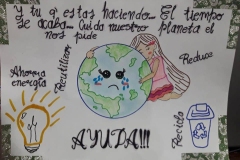 Y tu q estas haciendo... El tiempo
se acaba... Cuida nuestro planeta el
nos pide
Ahorra
energía
Reutilizar
Reduce
Recicla
AYUDA!!!